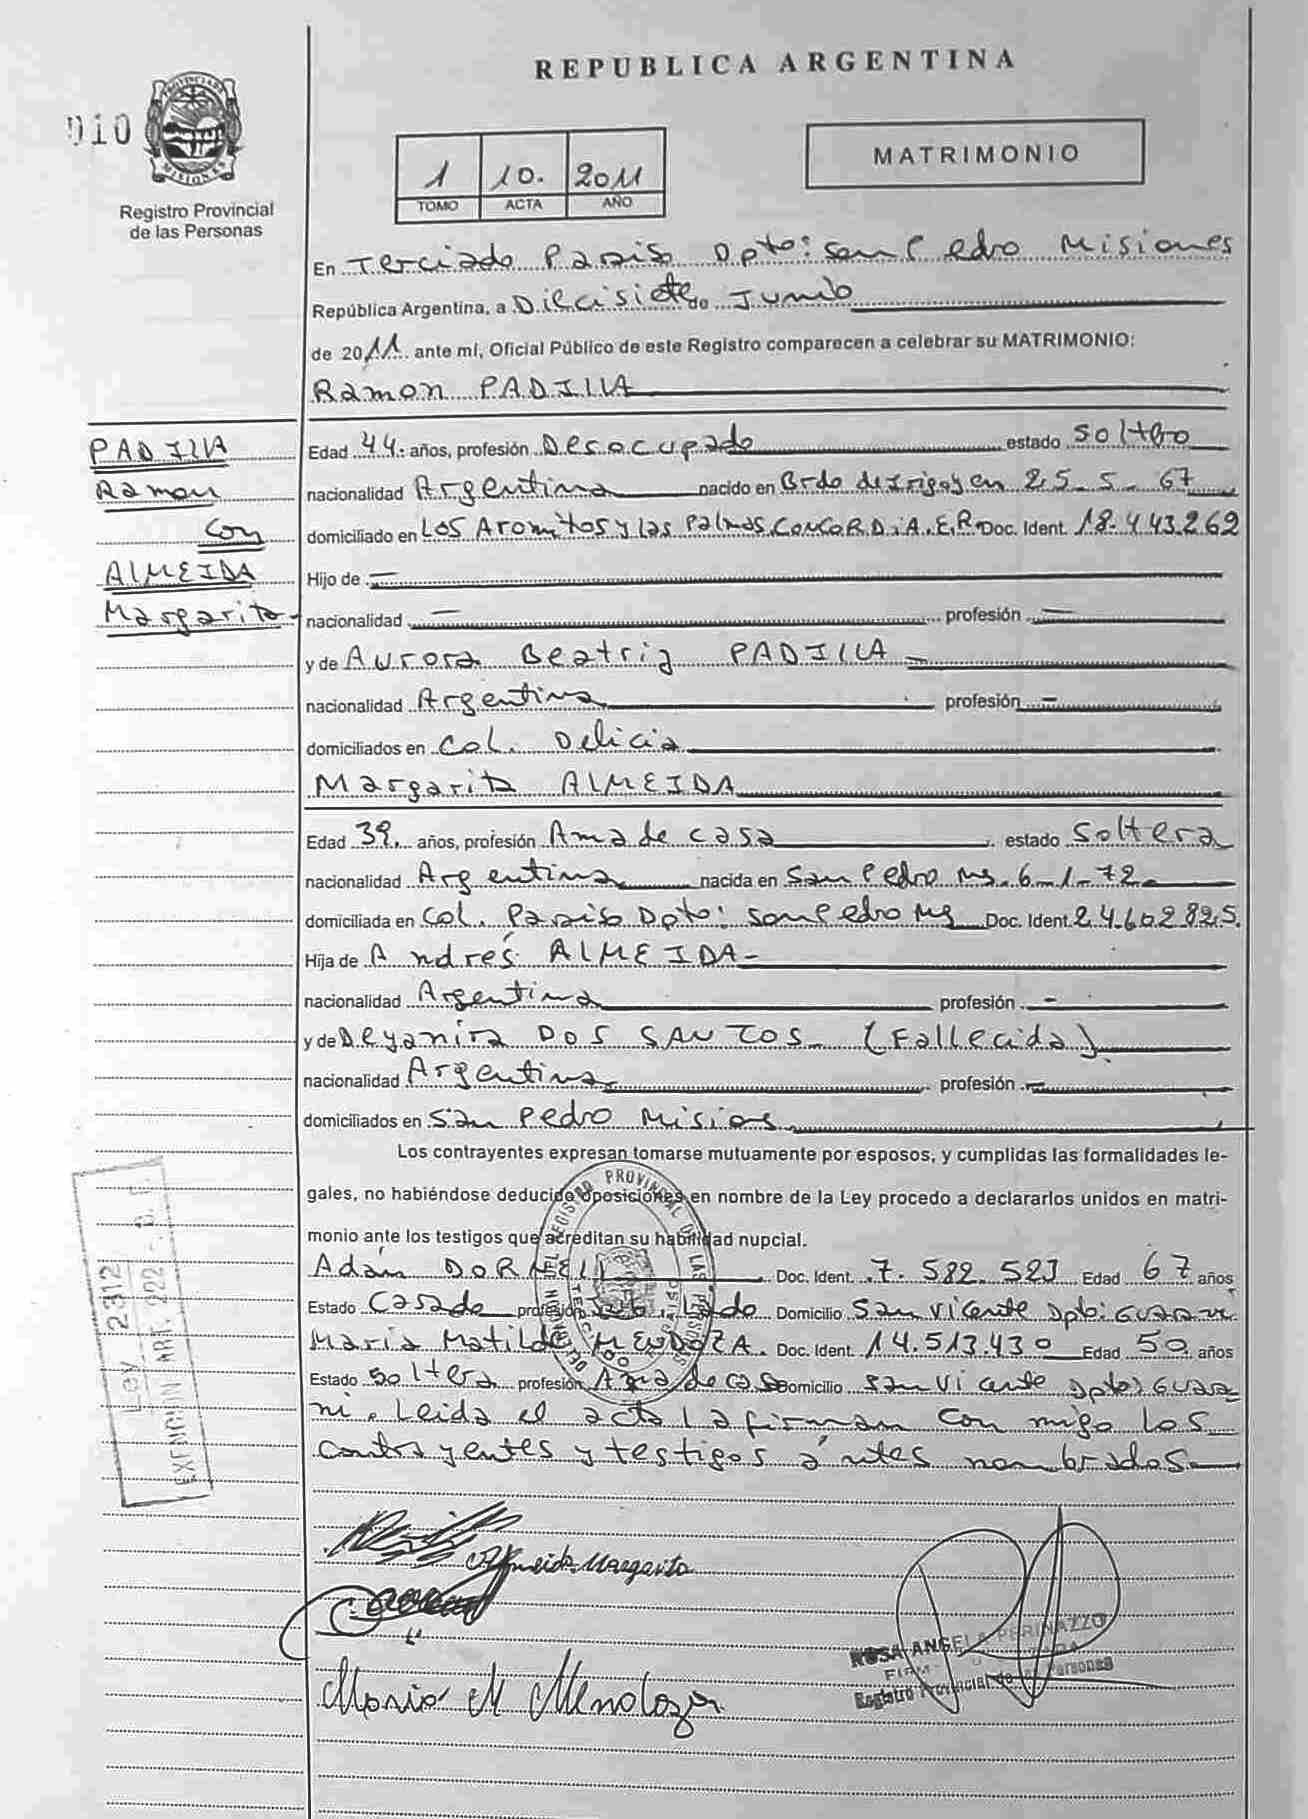 REPUBLICA ARGENTINA
010
PROVINCIA DE
MISIONES
Registro Provincial
de las Personas
1 10. 2011
TOMO ACTA AÑO
MATRIMONIO
En Terciado Paraiso Dpto: san Pedro Misiones
República Argentina, a Diecisiete de Junio
de 2011 ante mí, Oficial Público de este Registro comparecen a celebrar su MATRIMONIO:
Ramon PADILLA
PADILLA
Ramon
con
ALMEIDA
Margarita
Edad 44. años, profesión Desocupado estado soltero
nacionalidad Argentina nacido en Brdo de Irigoyen 25-5-67
domiciliado en LOS Aromitos y las Palmas CONCORDiA.E.R. Doc. Ident. 18.443.262
Hijo de —
nacionalidad — profesión —
y de Aurora Beatriz PADILLA —
nacionalidad Argentina profesión —
domiciliados en Col. Delicia
Margarita ALMEIDA
Edad 39. años, profesión Ama de casa estado soltera
nacionalidad Argentina nacida en San Pedro Ms. 6-1-72
domiciliada en Col. Paraiso Dpto: san Pedro Ms Doc. Ident 24.602825.
Hija de Andrés ALMEIDA-
nacionalidad Argentina profesión -
y de Deyanira DOS SANTOS- (Fallecida)
nacionalidad Argentina profesión -
domiciliados en San Pedro Misios
Los contrayentes expresan tomarse mutuamente por esposos, y cumplidas las formalidades le-
gales, no habiéndose deducido oposiciones en nombre de la Ley procedo a declararlos unidos en matri-
monio ante los testigos que acreditan su habilidad nupcial.
Adán Doc. Ident. 7.582.523 Edad 67 años
Estado Casado profesión Jubilado Domicilio San Vicente Dpto: Guarani
María Matilde MENDOZA. Doc. Ident. 14.513.430 Edad 50 años
Estado Soltera profesión Ama de casa Domicilio san Vicente Dpto: Guara
ni. Leida el acta la firman con migo los
contrayentes y testigos ántes nombrados-
Ley 2312
EXENCION ART. 222
Almeida Margarita
Maria M Mendoza
ROSA ANGELA PERINAZZO
Registro Provincial de las Personas